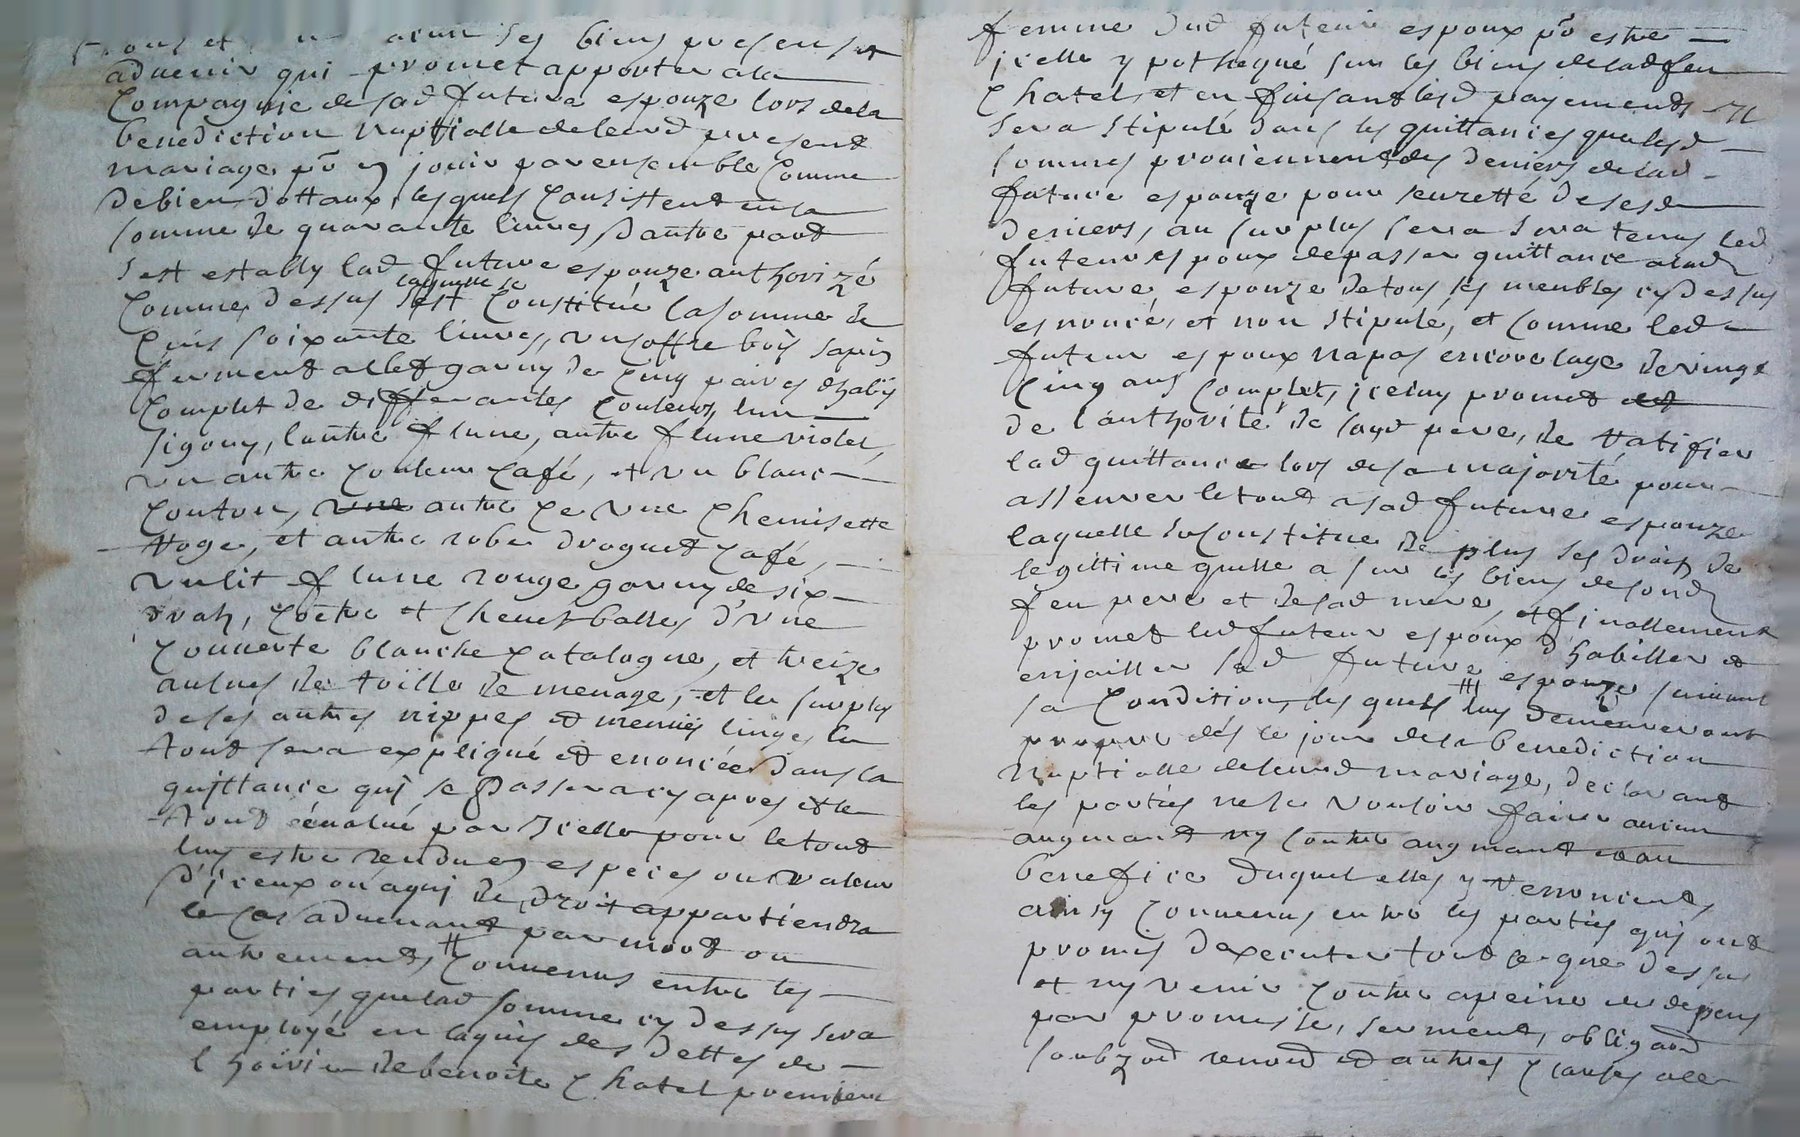 ses biens presens et
aduenir qui promet apporter a la
Compagnie de sad future espouze lors de la
benediction nuptialle de leurd present
mariage po en jouir par ensemble Comme
de biens dottaux, lesquels Consistent en la
somme de quarante liures, dautre part
sest estably lad future espouze authorizé
Comme dessus laquelle sest Constitué la somme de
soixante liures, un coffre bois sapin
fermant a clef garny de Cinq paires dhabis
Complet de differantes Couleurs, lun
, lautre flune, autre flune violet,
un autre Couleur Café, et un blanc
Couton, autre une Chemisette
, et autre robe droguet Café,
un lit flune rouge garny de six
drah, Coetre et d'une
Couuerte blanche Catalogne, et treize
aulnes de toille de menage, et le surplus
de ses autres nippes et menus linges le
tout sera expliqué et enoncée dans la
quittance quj se passera cy apres et le
tout éualué par Icelle pour le tout
luy estre rendu en especes ou valeur
d'jceux ou a quj de droit appartiendra
le Cas aduenant par mort ou
autrements # Conuenus entre les
parties, que lad somme cy dessus sera
employé en laquis des dettes de
l'hoirie de benoite Chatel premiere
femme dud futeur espoux po estre
jcelle ypothequé sur les biens de lad feu
Chatel, et en faisant lesd payements Il
sera stipulé dans les quittances que lesd
sommes prouiennent des deniers de lad
future espouze pour seuretté de sesd
deniers, au surplus sera sera tenus led
futeur espoux de passer quittance a lad
future espouze de tous les meubles cy dessus
esnoncé, et non stipulé, et comme led
futeur espoux na pas encore lage de vingt
Cinq ans Complet, jceluy promet
de l'authorité de sond pere, de ratifier
lad quittance lors de sa majorité pour
asseurer le tout a sad future espouze
laquelle se Constitue de plus ses droits de
legittime quelle a sur les biens de sond
feu pere et de sad mere, et finallement
promet led futeur espoux d'habiller et
enjailler sad future espouze suiuant
sa Condition, lesquels luy demeureront
propre dés le jour de la benediction
Nuptialle de leurd mariage, declarant
les parties ne se vouloir faire aucun
augmant ny Contre augmant au
benefice duquel elles y renoncent,
ainsy Conuenus entre les parties quj ont
promis dexecuter tout ce que dessus
et ny venir Contre a peine de depens
par promesse, serment, obligaon
soubzon renon et autres Clauses